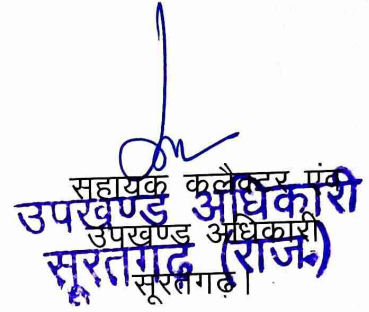 सहायक कलैक्टर एंव
उपखण्ड अधिकारी
उपखण्ड अधिकारी
सूरतगढ़ (राज.)
सूरतगढ़।